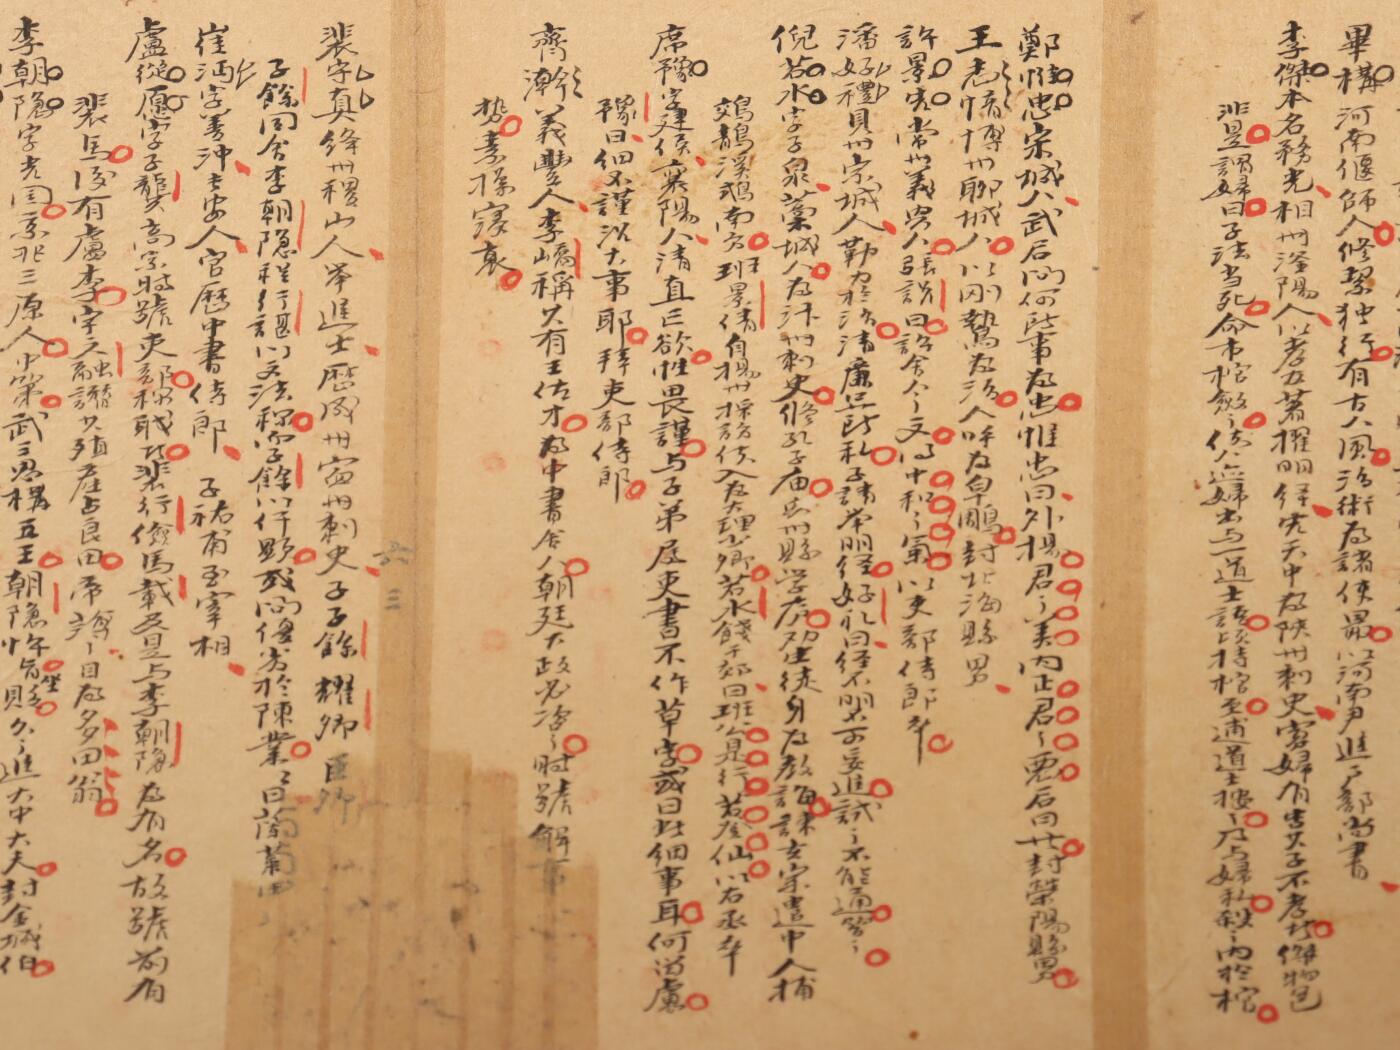 畢構河南偃師人修絜独行有古人風治術為諸使最以河南尹進戶部尚書
李傑本名務光相州滏陽人以孝友著擢明経宋天中為陝州刺史寡婦有告其子不孝者傑物色
非是謂婦曰子法当死命市棺斂之使人迹婦出与一道士語頃持棺至捕道士按之乃与婦私殺之內於棺
鄭惟忠宋城人武后问何所事為忠惟忠曰外揚君之美內正君之惡后曰善封滎陽縣男
王志愔博州聊城人以剛鷙為治人呼為皁鵰封北海縣男
許景先常州義興人張説曰許舍人之文得中和之氣以吏部侍郎卒
潘好禮貝州宗城人勤力於治清廉無所私子請举明経好礼曰経不明不可妄進試之不能通笞之
倪若水字子泉藁城人為汴州刺史修孔子庙与州縣学广勸生徒身為教誨課玄宗遣中人捕
鵁鶄溪鵡南方班景倩自揚州採訪使入為大理少卿若水餞于郊曰班公是行若登仙以右丞卒
席豫字建侯襄陽人清直無欲性畏謹与子弟属吏書不作草字或曰此細事耳何留慮
豫曰细不謹況大事耶拜吏部侍郎
齊澣義豐人李嶠稱其有王佐才為中書舍人朝廷大政必咨之時號解事
裴守真絳州稷山人举進士歷成州寧州刺史子子餘耀卿巨卿
子餘同舍李朝隐程行諶以文法称子餘以仔顯或问優劣於陳業業曰蘭菊
崔沔字善沖長安人官歷中書侍郎子祐甫至宰相
盧從愿字子龔高宗時號吏部称職者裴行儉馬載及是与李朝隐為有名故號前有
裴馬後有盧李宇文融譖其殖產占良田帝薄之目為多田翁
李朝隐字光国京兆三原人中第武三思構五王朝隐坐貶久之進太中大夫封金城伯